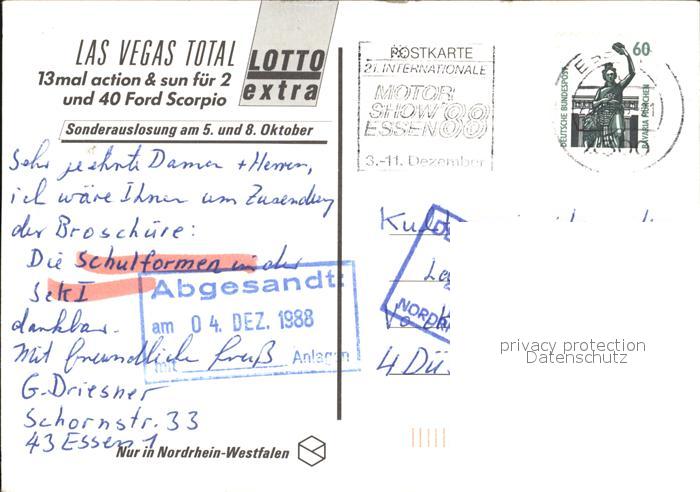 LAS VEGAS TOTAL
13mal action & sun für 2
und 40 Ford Scorpio
LOTTO
extra
Sonderauslosung am 5. und 8. Oktober
Sehr geehrte Damen + Herren,
ich wäre Ihnen um Zusendung
der Broschüre:
Die Schulformen in der
Sek I
dankbar.
Mit freundlichem Gruß
G. Driesner
Schornstr. 33
43 Essen 1
Abgesandt:
am 04. DEZ. 1988
mit Anlagen
Nur in Nordrhein-Westfalen
POSTKARTE
21. INTERNATIONALE
MOTOR
SHOW 88
ESSEN
3.-11. Dezember
60
DEUTSCHE BUNDESPOST
BAVARIA MÜNCHEN
Kult
NORDR
4 Dü
privacy protection
Datenschutz